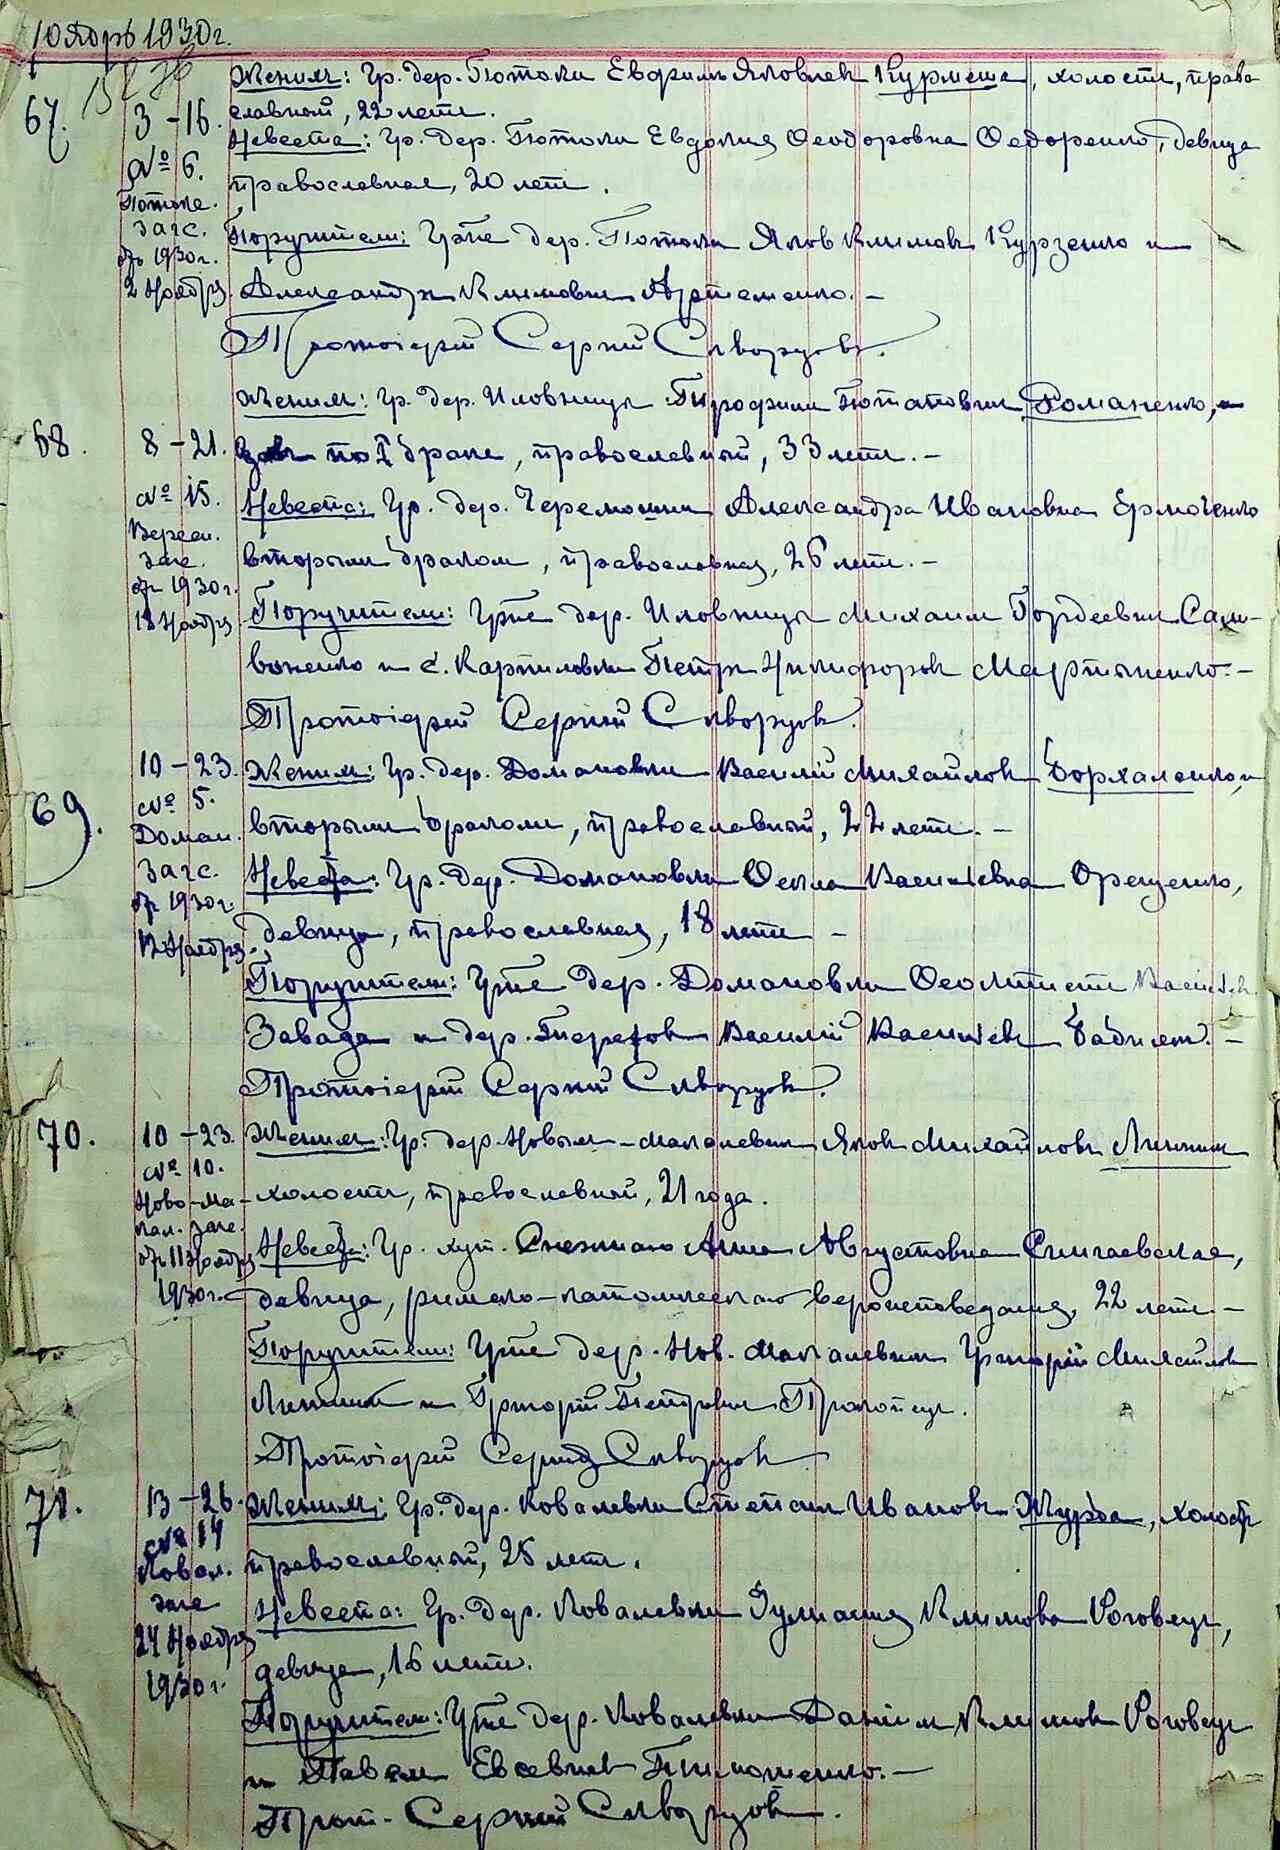 Ноябрь 1930 г.
67.
3 – 16.
№ 6.
Потоке.
Загс.
от 1930 г.
2 Ноября
Жених: Гр. дер. Потоки Евфимъ Яковлев Курмеша, холостъ, право
славный, 22 летъ.
Невеста: Гр. дер. Потоки Евдокия Феодоровна Федоренко, девица
православная, 20 летъ.
Поручители: Гр-не дер. Потоки Яков Климовъ Курзенко и
Александръ Климовъ Артеменко. –
Протоіерей Сергий Скворцовъ.
68.
8 – 21.
№ 15.
Загс.
от 1930 г.
18 Ноября
Жених: Гр. дер. Иловницы Потаповичъ Романенко,
по I браке, православный, 33 летъ. –
Невеста: Гр. дер. Черемошки Александра Ивановна Ермоченко
вторым браком, православная, 26 летъ. –
Поручители: Гр-не дер. Иловницы Михаил Гордеевич Сам-
воненко и с. Карпиловки Петръ Никифоровъ Мартыненко. –
Протоіерей Сергий Скворцовъ.
69.
10 – 23.
№ 5.
Доман.
Загс.
от 1930 г.
12 Ноября
Жених: Гр. дер. Домановки Василій Михайловъ Борхаленко,
вторым браком, православный, 22 летъ. –
Невеста: Гр. дер. Домановки Фекла Васильевна Орещенко,
девица, православная, 18 летъ –
Поручители: Гр-не дер. Домановки Феоктистъ Васильев
Завада и дер. Василій Васильевъ –
Протоіерей Сергий Скворцовъ.
70.
10 – 23.
№ 10.
Ново-Ма-
кал. Загс.
от 11 Ноября
1930 г.
Жених: Гр. дер. Новым-Макалевич Яков Михайловъ Линник
холостъ, православный, 21 года.
Невеста: Гр. хут. Анна Августовна Снигаевская,
девица, римско-католическаго вероисповедания, 22 летъ. –
Поручители: Гр-не дер. Нов. Макалевич Григорій Михайлов
Линник и Григорій Петрович Прокопец.
Протоіерей Сергий Скворцовъ
71.
13 – 26.
№ 14
Ковал.
Загс
24 Ноября
1930 г.
Жених: Гр. дер. Ковалевки Степан Иванов Журба, холостъ
православный, 25 летъ.
Невеста: Гр. дер. Ковалевки Иулиания Климова Роговец,
девица, 16 летъ.
Поручители: Гр-не дер. Ковалевки Даніил Климов Роговец
и Павел Евсевиев Тимошенко. –
Прот. Сергий Скворцовъ.